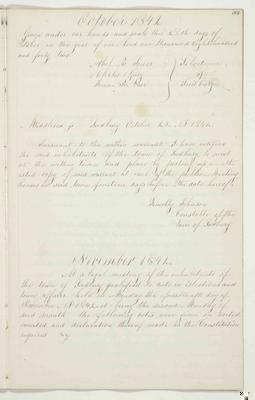 October 1842
Given under our hands and seals this 22th day of
October in the year of our Lord one thousand eight hundred
and forty two.
Selectmen
of
Sudbury
Middlesex ss Sudbury October 22. AD 1842.
Pursuant to the within warrant I have notified
the said inhabitants of the town of Sudbury to meet
at the within time and place by posting up an at-
tested copy of said warrant at each of the public Meeting
houses in said town fourteen days before the date hereof
Timothy Johnson
Constable of the
Town of Sudbury
November 1842.
At a legal meeting of the inhabitants of
the town of Sudbury qualified to vote in Elections and
town affairs held on Monday the fourteenth day of
November AD 1842, it being the second Monday of
said month the following votes were given in sorted
counted and declaration thereof made as the Constitution
requires